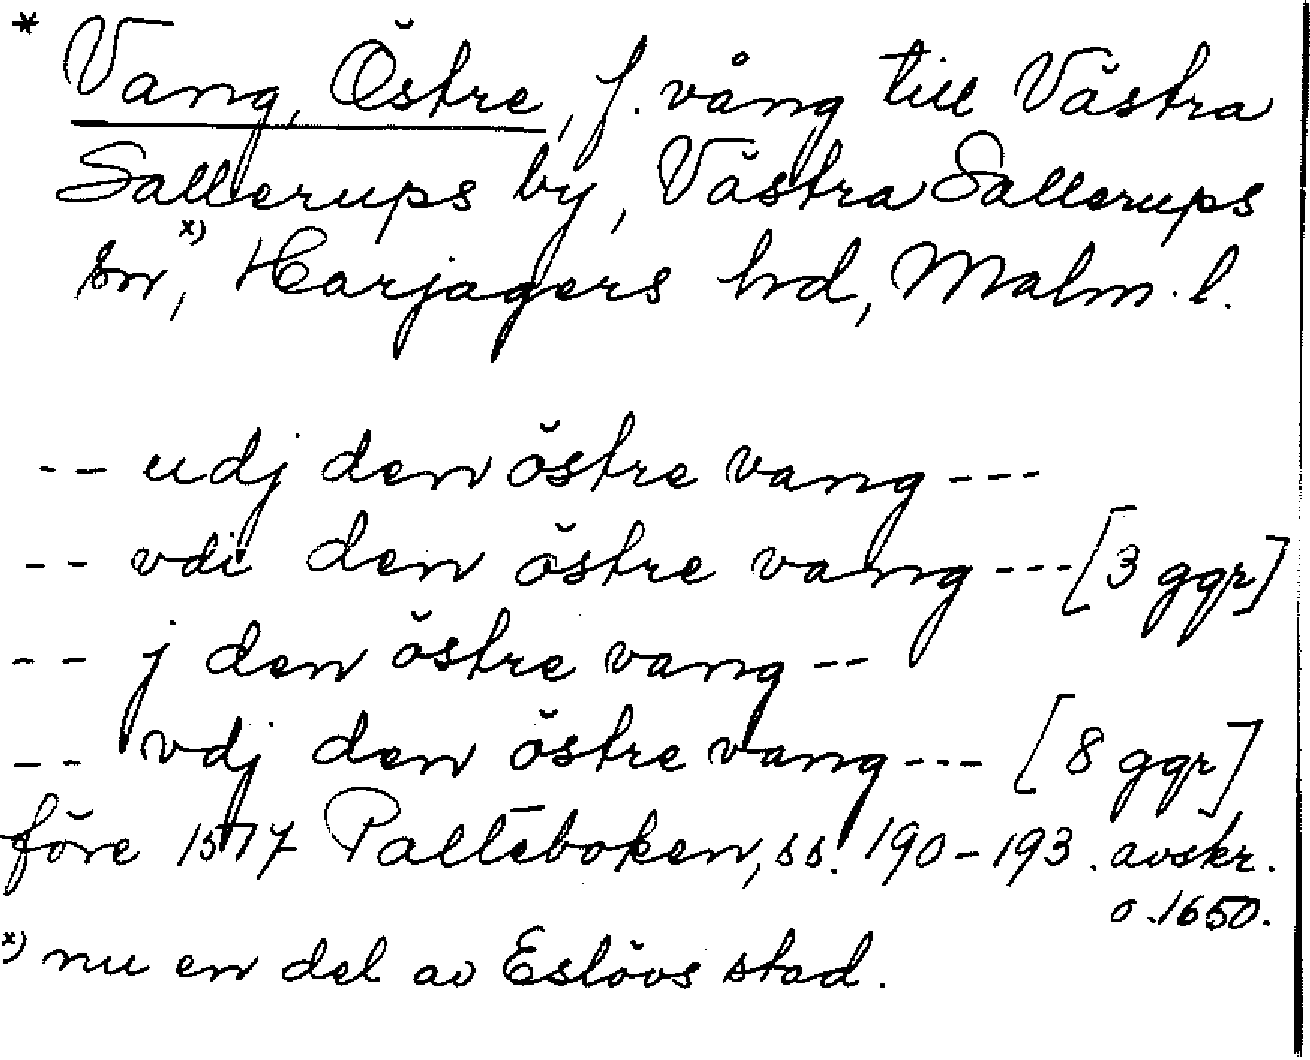 * Vang, Östre, f. vång till Västra
Sallerups by, Västra Sallerups
sn, x) Harjagers hd, Malm. l.
-- udj den östre vang ---
-- vdi den östre vang --- [3 ggr]
-- j den östre vang --
-- vdj den östre vang --- [8 ggr]
före 1577 Palteboken, ss. 190-193. avskr.
o. 1650.
x) nu en del av Eslövs stad.